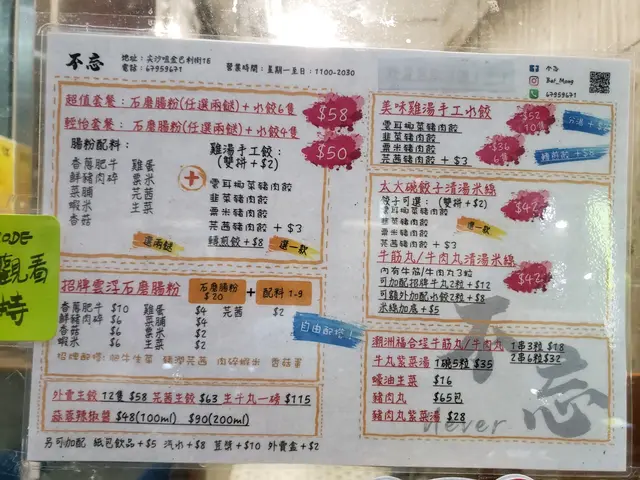 不忘
地址：尖沙咀金巴利街1E
電話：67959671
營業時間：星期一至日：1100-2030
不忘
Bat_Mong
67959671
超值套餐：石磨腸粉(任選兩餸)+水餃6隻 $58
輕怡套餐：石磨腸粉(任選兩餸)+水餃4隻 $50
腸粉配料：
香茜肥牛 雞蛋
鮮豬肉碎 粟米
菜脯 芫茜
蝦米 生菜
香菇
選兩餸
雞湯手工餃：
(雙拼+$2)
雲耳椰菜豬肉餃
韭菜豬肉餃
粟米豬肉餃
芫茜豬肉餃 +$3
轉煎餃 +$8
選一款
招牌雲浮石磨腸粉
石磨腸粉
$20
+ 配料1-9
香茜肥牛 $10 雞蛋 $4 芫茜 $2
鮮豬肉碎 $6 菜脯 $4
香菇 $6 粟米 $2
蝦米 $6 生菜 $2
自由配搭！
外賣生餃 12隻 $58 芫茜生餃 $63 牛丸一磅 $115
蒜蓉辣椒醬 $48(100ml) $90(200ml)
另可加配 紙包飲品+$5 汽水+$8 豆漿+$10 外賣盒+$2
美味雞湯手工水餃
雲耳椰菜豬肉餃
韭菜豬肉餃
粟米豬肉餃
芫茜豬肉餃 +$3
$52
10隻
$36
6隻
轉煎餃 +$8
太大碗餃子清湯米線
餃子可選：(雙拼+$2)
雲耳椰菜豬肉餃
韭菜豬肉餃
粟米豬肉餃
芫茜豬肉餃 +$3
$42
選一款
牛筋丸/牛肉丸清湯米線
內有牛筋/牛肉丸3粒
可加配招牌牛丸2粒 +$12
可額外加配水餃2粒 +$8
米線加底 +$5
$42
潮洲福合埕牛筋丸/牛肉丸 1串3粒 $18
2串6粒 $32
牛丸紫菜湯 1碗5粒 $35
蠔油生菜 $16
豬肉丸 $65包
豬肉丸紫菜湯 $28
不忘
never
CODE
觀看